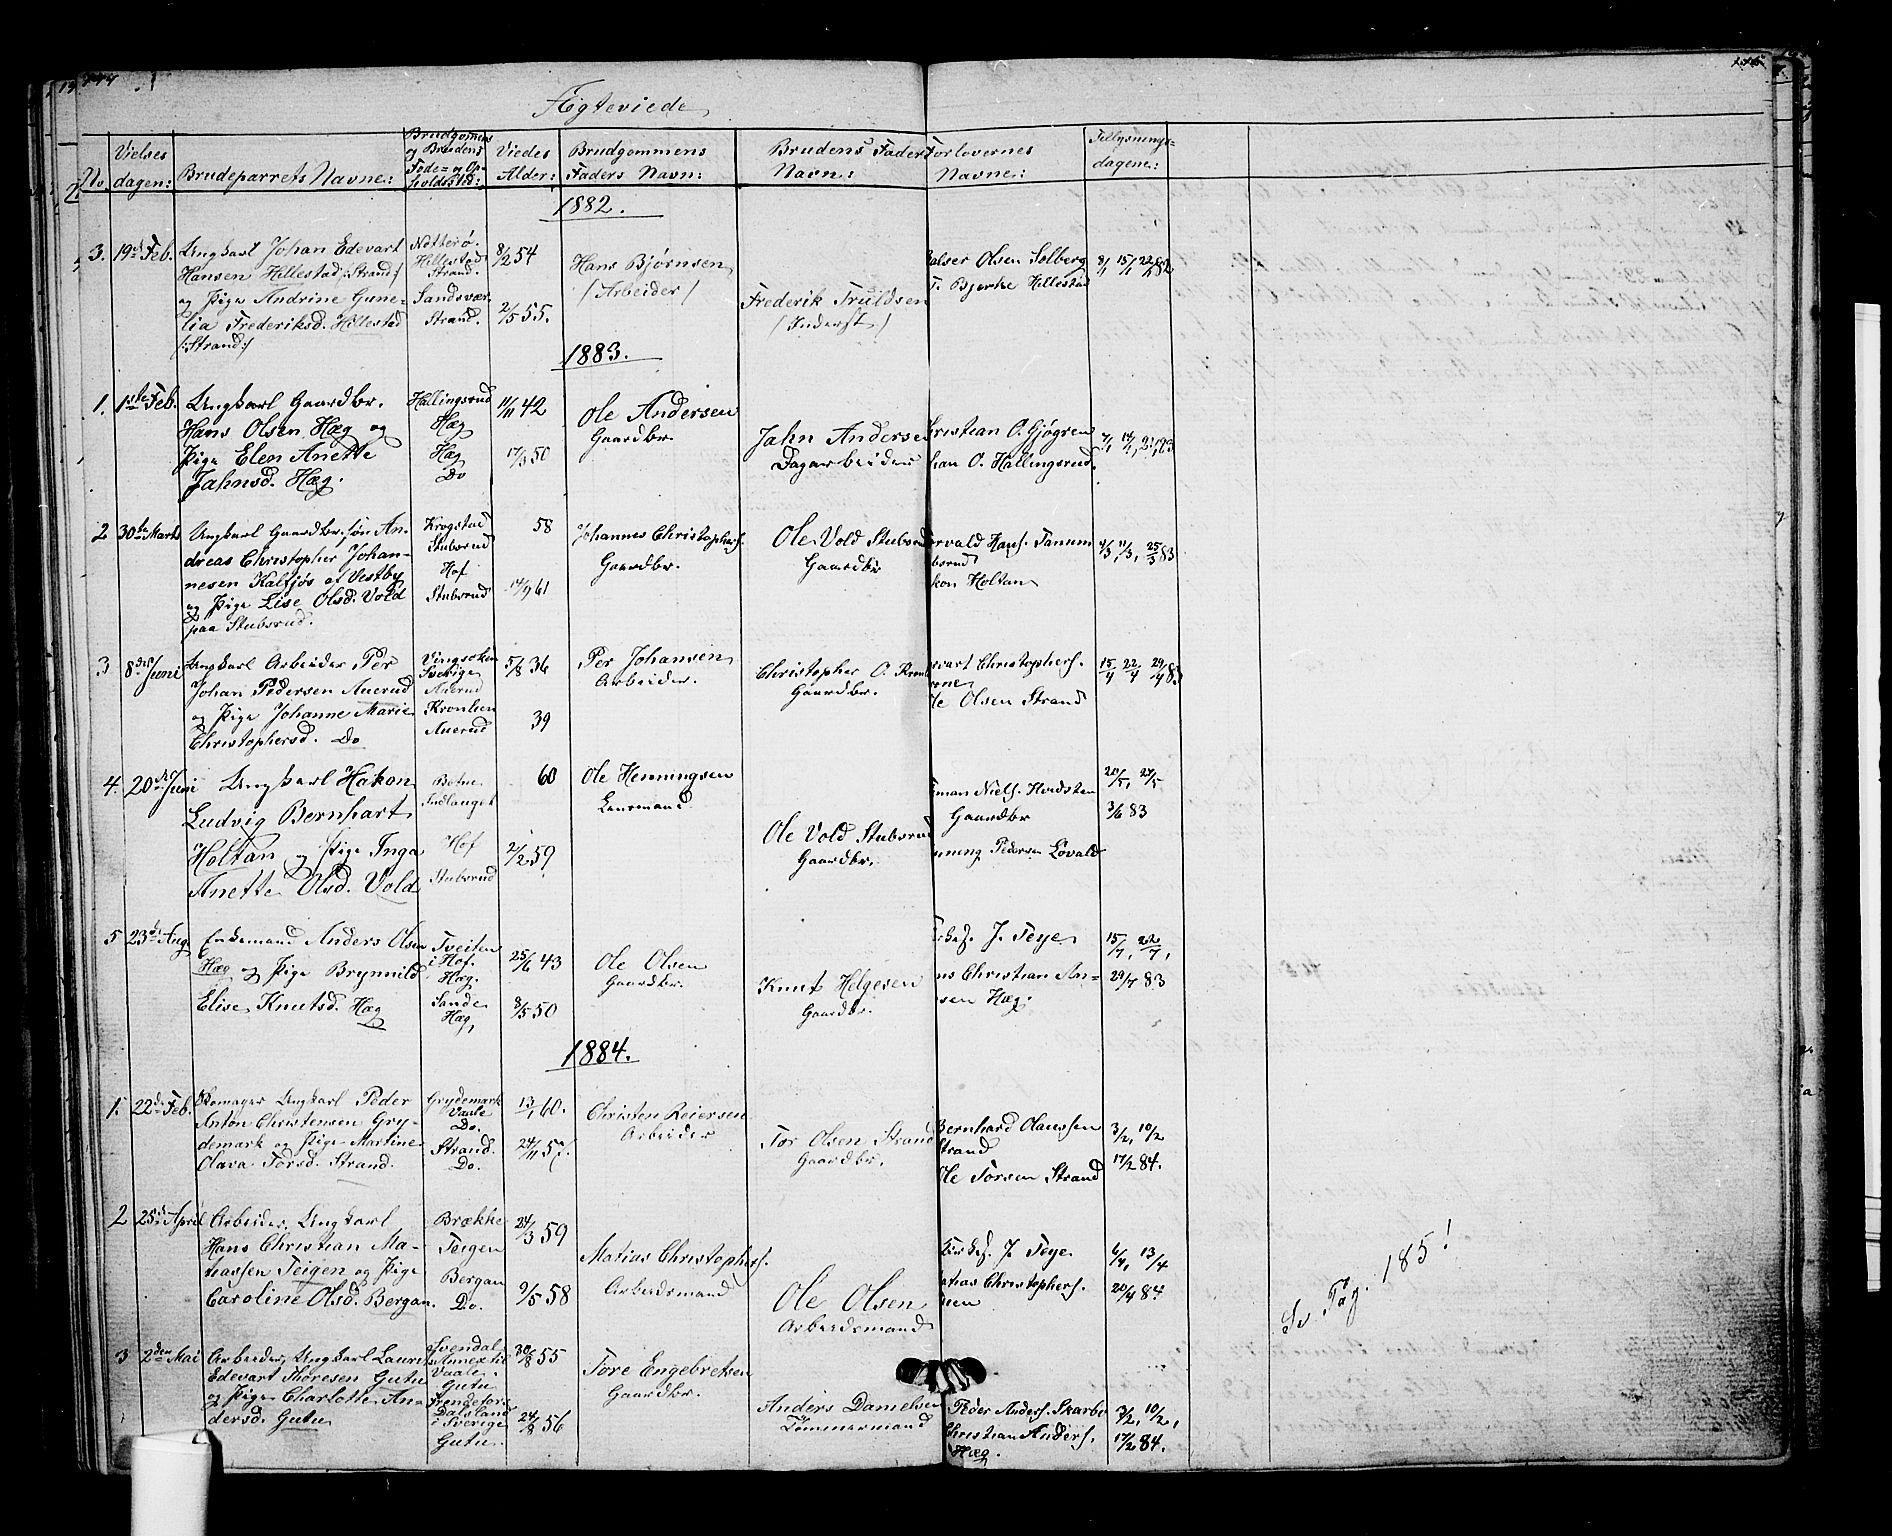 Ægteviede
No.
Vielses
dagen:
Brudeparrets Navne:
Brudgommens
og Brudens
Føde- og Op-
holdssted:
Viedes
Alder:
Brudgommens
Faders Navn:
Brudens Faders
Navn:
Forlovernes
Navne:
Tillysnings-
dagene:
1882.
3. 19de Feb.
Ungkarl Johan Edevart
Hansen Hillestad /:Strand:/
og Pige Andrine Gune-
lia Frederiksd. Hillestad
/:Strand:/
Nøtterø.
Hillestad
Strand.
Sandsvær
Strand.
8/2 54
2/5 55.
Hans Bjørnsen
/Arbeider/
Frederik Truldsen
/Inderst/
alser Olsen Solberg
T. Bjerke Hillestad
8/1 15/1 22/1 82
1883.
1. 1ste Feb.
Ungkarl Gaardbr.
Hans Olsen Hæg og
Pige Elen Anette
Jahnsd. Hæg.
Hallingsrud
Hæg
Hæg
Do
11/11 42
17/3 50
Ole Andersen
Gaardbr.
Jahn Anderse
Dagarbeider
hristian O. Gjøgren
han O. Hallingsrud.
7/1, 14/1, 21/1 83
2 30te Marts
Ungkarl Gaardbr. søn An-
dreas Christopher Johan-
nesen Kalfjøs af Vestby
og Pige Lise Olsd. Vold
paa Stubsrud.
Krogstad
Stubsrud
Hof
Stubsrud
58
14/9 61
Johannes Christophers.
Gaardbr.
Ole Vold Stubsrud
Gaardbr
orvald Hans. Tanum
bsrud
kon Holtan
4/3, 11/3, 25/3 83
3 8de Juni
Ungkarl Arbeider Per
Johan Pedersen Auerud
og Pige Johanne Marie
Christophersd. Do
Vingaaker
Sverige
Auerud
Kronlien
Auerud
5/8 36
39
Per Johansen
Arbeider.
Christopher O. Kronl
Gaardbr.
svart Christophers.
rone
le Olsen Strand
15/4 22/4 29/4 83
4. 20de Juni
Ungkarl Hakon
Ludvig Bernhart
Holtan og Pige Inga
Anette Olsd. Vold
Botne
Indlaget
Hof
Stubsrud
60
2/2 59
Ole Henningsen
Lensmand
Ole Vold Stubsrud
Gaardbr.
man Niels. Hvidsten
Gaardbr
nning Pedersen Løvald
20/5, 27/5
3/6 83
5 23de Aug
Enkemand Anders Olsen
Hæg og Pige Brynnild
Elise Knutsd. Hæg
Tveiten
i Hof.
Hæg.
Sande
Hæg,
25/6 43
8/5 50
Ole Olsen
Gaardbr.
Knut Helgesen
Gaardbr.
irkes. J. Teye
ns Christian An-
rsen Hæg.
15/7, 22/7,
29/7 83
1884.
1. 22de Feb.
Skomager Ungkarl Peder
Anton Christensen Gry-
demark og Pige Martine
Olava Torsd. Strand.
Grydemark
Vaale
Do.
Strand.
Do.
13/1 60.
24/11 57.
Christen Reiersen
Arbeider
Tor Olsen Strand
Gaardbr.
Bernhard Olaussen
Strand
Ole Torsen Strand
3/2, 10/2
17/2 84.
2 25de April
Arbeider, Ungkarl
Hans Christian Ma-
thassen Teigen og Pige
Caroline Olsd. Bergan.
Brække
Teigen
Bergan
Do.
24/3 59
9/5 58
Matias Christophers.
Arbeidsmand
Ole Olsen
Arbeidsmand
Kirkes. J. Teye.
atias Christophers.
gen
6/4, 13/4
20/4 84
Se Pag. 185!
3 2den Mai
Arbeider, Ungkarl Laurits
Edevart Thoresen Gutu
og Pige Charlotte An-
dersd. Gutu
Svendal
Annex til
Vaale.
Gutu
Frendefors
Dalsland
i Sverige
Gutu.
30/8 55
24/8 56
Tore Engebretsen
Gaardbr.
Anders Danielsen
Tømmermand
Peder Anders. Skarbo
Christian Anders.
Hæg.
3/2, 10/2,
17/2 84.